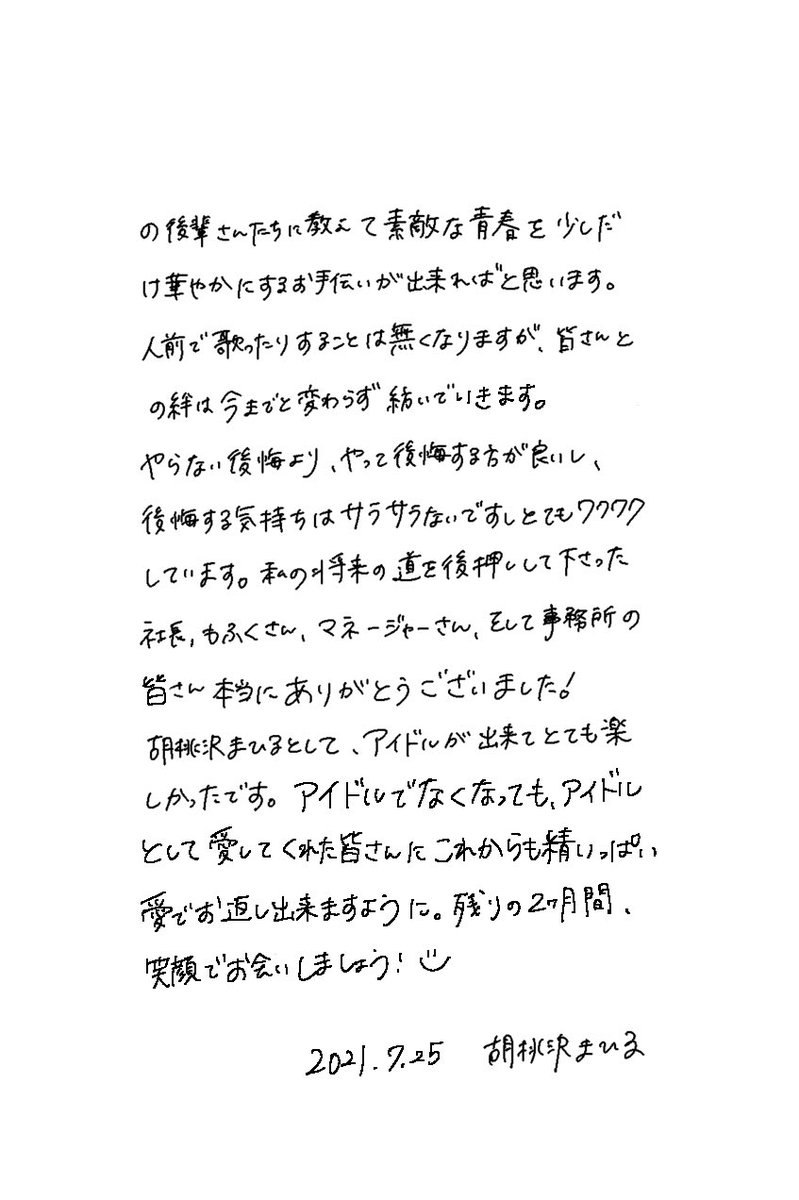 の後輩さんたちに教えて素敵な青春を少しだ
け華やかにするお手伝いが出来ればと思います。
人前で歌ったりすることは無くなりますが、皆さんと
の絆は今までと変わらず紡いでいきます。
やらない後悔より、やって後悔する方が良いし、
後悔する気持ちはサラサラないですしとてもワクワク
しています。私の将来の道を後押しして下さった
社長,もふくさん、マネージャーさん、そして事務所の
皆さん本当にありがとうございました!
胡桃沢まひるとして、アイドルが出来てとても楽
しかったです。アイドルでなくなっても、アイドル
として愛してくれた皆さんにこれからも精いっぱい
愛でお返し出来ますように。残りの2ヶ月間、
笑顔でお会いしましょう!
2021.7.25 胡桃沢まひる